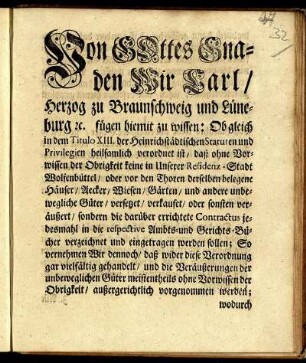 32
Von GOttes Gna-
den Wir Carl/
Herzog zu Braunschweig und Lüne-
burg ꝛc. fügen hiemit zu wissen: Ob gleich
in dem Titulo XIII. der Heinrichstädtischen Statuten und
Privilegien heilsamlich verordnet ist/ daß ohne Vor-
wissen der Obrigkeit keine in Unserer Residenz-Stadt
Wolfenbüttel/ oder vor den Thoren derselben belegene
Häuser/ Aecker/ Wiesen/ Gärten/ und andere unbe-
wegliche Güter/ versetzet/ verkaufet/ oder sonsten ver-
äußert/ sondern die darüber errichtete Contractus je-
desmahl in die respective Ambts- und Gerichts-Bü-
cher verzeichnet und eingetragen werden sollen; So
vernehmen Wir dennoch/ daß wider diese Verordnung
gar vielfältig gehandelt/ und die Veräußerungen der
unbeweglichen Güter meistentheils ohne Vorwissen der
Obrigkeit/ außergerichtlich vorgenommen werden;
wodurch